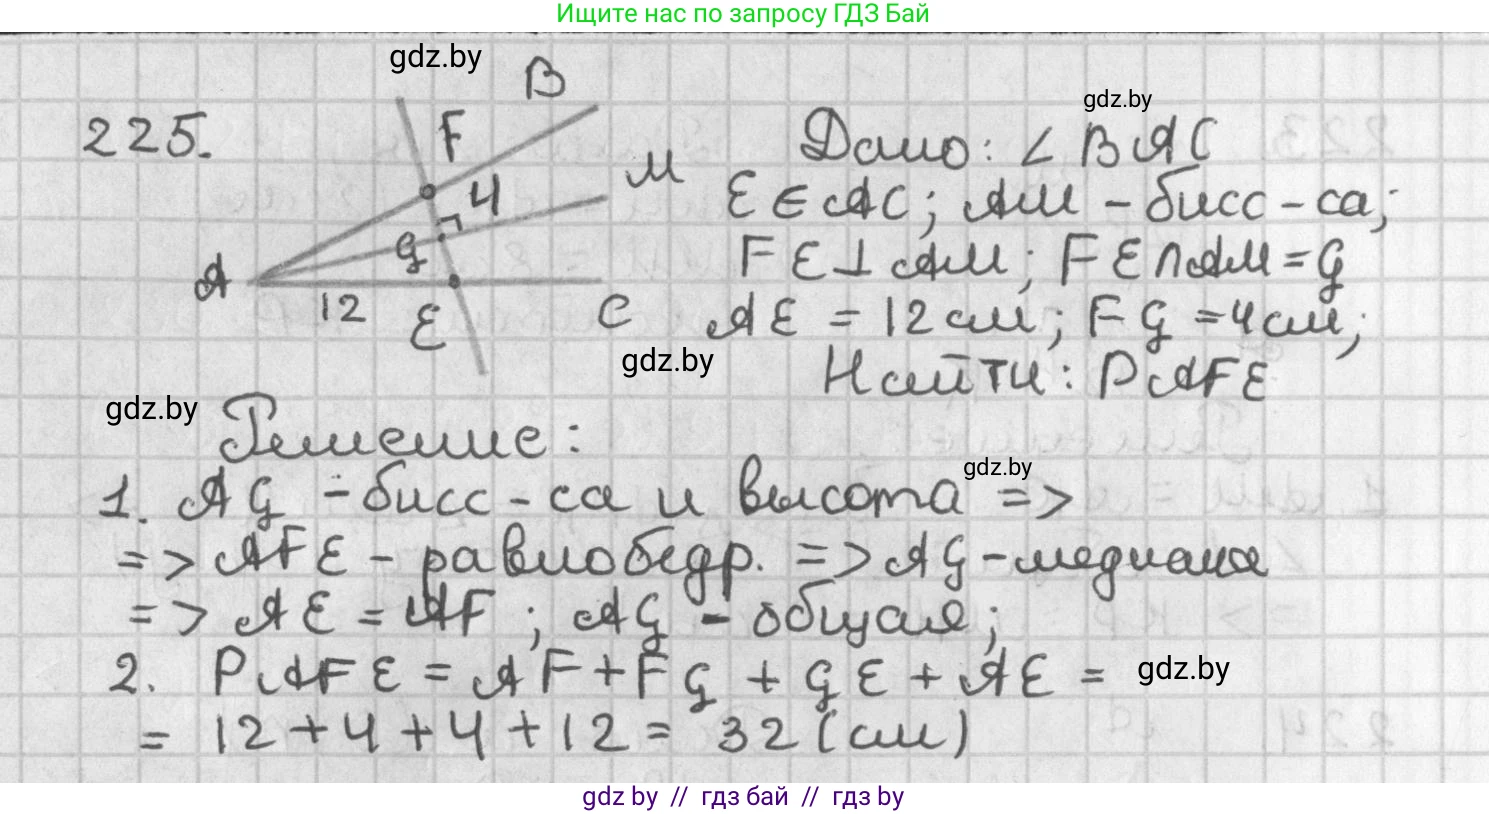 Ищите нас по запросу ГДЗ Бай
gdz.by
B
gdz.by
225.
F
Дано: ∠ BAC
M
4
E ∈ AC; AM - бисс-са;
G
FE ⊥ AM; FE ∩ AM = G
A
12
E
C
AE = 12 см; FG = 4 см;
gdz.by
Найти: PAFE
gdz.by
Решение:
gdz.by
1. AG - бисс-са и высота =>
=> AFE - равнобедр. => AG - медиана
=> AE = AF; AG - общая;
2. PAFE = AF + FG + GE + AE =
gdz.by
= 12 + 4 + 4 + 12 = 32 (см)
gdz by // гдз бай // гдз by